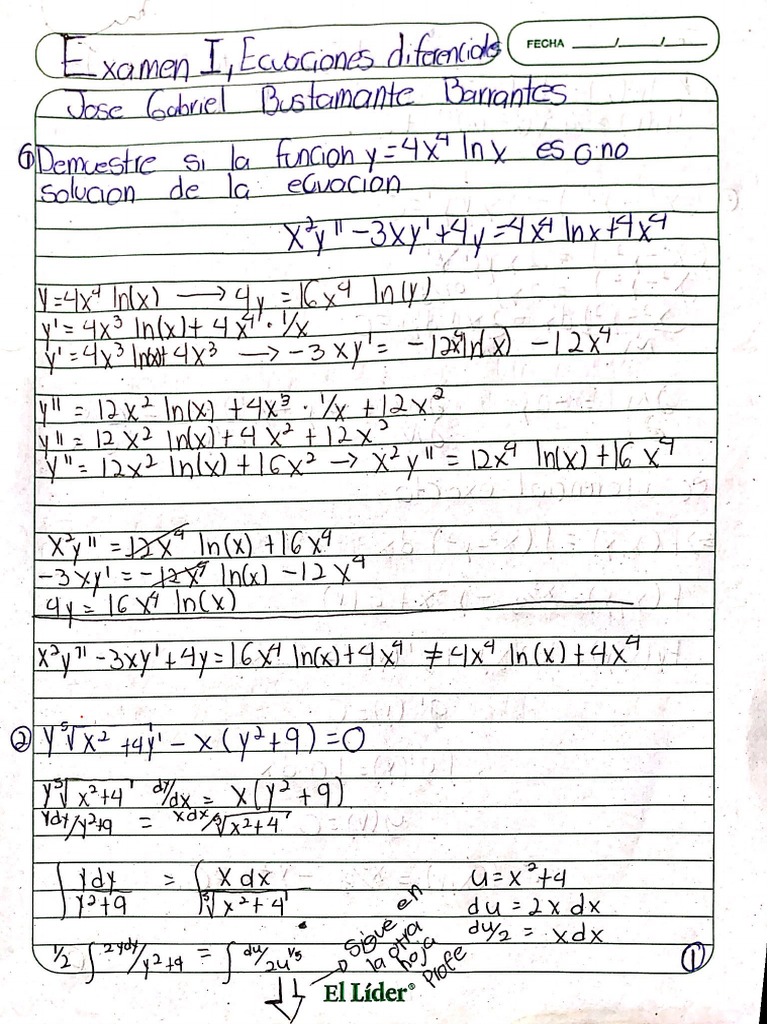 Examen I, Ecuaciones diferenciales
FECHA ___/___/___
Jose Gabriel Bustamante Barrantes
① Demuestre si la funcion y=4x⁴ ln x es o no
solucion de la ecuacion
x²y'' - 3xy' + 4y = 4x⁴ ln x + 4x⁴
y = 4x⁴ ln(x) → 4y = 16x⁴ ln(y)
y' = 4x³ ln(x) + 4x⁴ · 1/x
y' = 4x³ ln(x) + 4x³ → -3xy' = -12x⁴ ln(x) - 12x⁴
y'' = 12x² ln(x) + 4x³ · 1/x + 12x²
y'' = 12x² ln(x) + 4x² + 12x²
y'' = 12x² ln(x) + 16x² → x²y'' = 12x⁴ ln(x) + 16x⁴
x²y'' = 12x⁴ ln(x) + 16x⁴
-3xy' = -12x⁴ ln(x) - 12x⁴
4y = 16x⁴ ln(x)
x²y'' - 3xy' + 4y = 16x⁴ ln(x) + 4x⁴ ≠ 4x⁴ ln(x) + 4x⁴
② y ⁵√x² + 4 y' - x(y² + 9) = 0
y ⁵√x² + 4 dy/dx = x(y² + 9)
ydy/y²+9 = xdx/⁵√x²+4
∫ ydy/y²+9 = ∫ xdx/⁵√x²+4
u = x² + 4
du = 2x dx
du/2 = x dx
1/2 ∫ 2ydy/y²+9 = ∫ du/2u^1/5
Sigue en
la otra
hoja
Profe
①
El Líder®